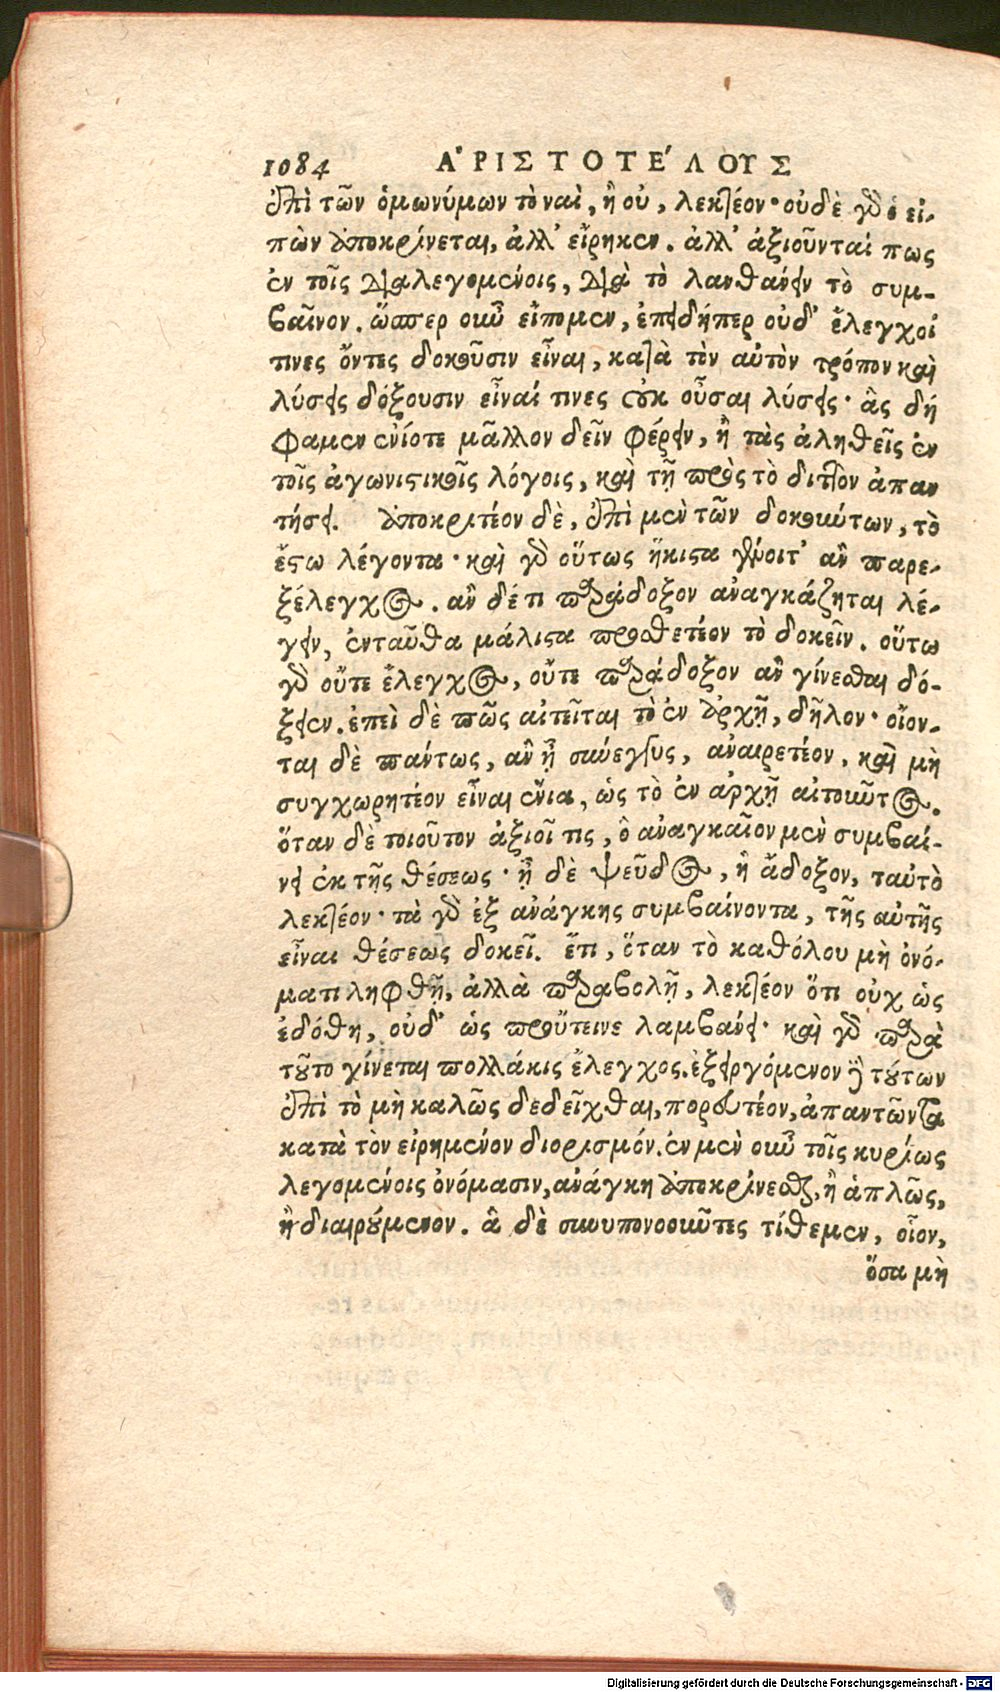 1084 ΑʼΡΙΣΤΟΤΕʹΛΟΥΣ
ἐπὶ τῶν ὁμωνύμων τὸ ναὶ, ἢ οὐ, λεκτέον· οὐδὲ γὰρ ὁ εἰ-
πὼν ἀποκρίνεται, ἀλλ' εἴρηκεν. ἀλλ' ἀξιοῦνταί πως
ἐν τοῖς διαλεγομένοις, διὰ τὸ λανθάνειν τὸ συμ-
βαῖνον. ὥσπερ οὖν εἴπομεν, ἐπειδήπερ οὐδ' ἔλεγχοί
τινες ὄντες δοκοῦσιν εἶναι, κατὰ τὸν αὐτὸν τρόπον καὶ
λύσεις δόξουσιν εἶναί τινες οὐκ οὖσαι λύσεις· ἃς δή
φαμεν ἐνίοτε μᾶλλον δεῖν φέρειν, ἢ τὰς ἀληθεῖς ἐν
τοῖς ἀγωνιστικοῖς λόγοις, καὶ τῇ πρὸς τὸ διττὸν ἀπαν
τήσει. ἀποκριτέον δὲ, ἐπὶ μὲν τῶν δοκούντων, τὸ
ἔστω λέγοντα· καὶ γὰρ οὕτως ἥκιστα γίνοιτ' ἂν παρε-
ξέλεγχος. ἂν δέ τι παράδοξον ἀναγκάζηται λέ-
γειν, ἐνταῦθα μάλιστα προσθετέον τὸ δοκεῖν. οὕτω
γὰρ οὔτε ἔλεγχος, οὔτε παράδοξον ἂν γίνεσθαι δό-
ξειεν. ἐπεὶ δὲ πῶς αἰτεῖται τὸ ἐν ἀρχῇ, δῆλον· οἴον-
ται δὲ πάντως, ἂν ᾖ σύνεγγυς, ἀναιρετέον, καὶ μὴ
συγχωρητέον εἶναι ἔνια, ὡς τὸ ἐν ἀρχῇ αἰτοῦντος.
ὅταν δὲ τοιοῦτον ἀξιοῖ τις, ὃ ἀναγκαῖον μὲν συμβαί-
νει ἐκ τῆς θέσεως· ᾖ δὲ ψεῦδος, ἢ ἄδοξον, ταὐτὸ
λεκτέον· τὰ γὰρ ἐξ ἀνάγκης συμβαίνοντα, τῆς αὐτῆς
εἶναι θέσεως δοκεῖ. ἔτι, ὅταν τὸ καθόλου μὴ ὀνό-
ματι ληφθῇ, ἀλλὰ παραβολῇ, λεκτέον ὅτι οὐχ ὡς
ἐδόθη, οὐδ' ὡς προὔτεινε λαμβάνει· καὶ γὰρ παρὰ
τοῦτο γίνεται πολλάκις ἔλεγχος. ἐξειργόμενον δὲ τούτων
ἐπὶ τὸ μὴ καλῶς δεδεῖχθαι, πορευτέον, ἀπαντῶντα
κατὰ τὸν εἰρημένον διορισμόν. ἐν μὲν οὖν τοῖς κυρίως
λεγομένοις ὀνόμασιν, ἀνάγκη ἀποκρίνεσθαι, ἢ ἁπλῶς,
ἢ διαιρούμενον. ἃ δὲ συνυπονοοῦντες τίθεμεν, οἷον,
ὅσα μὴ
Digitalisierung gefördert durch die Deutsche Forschungsgemeinschaft - DFG